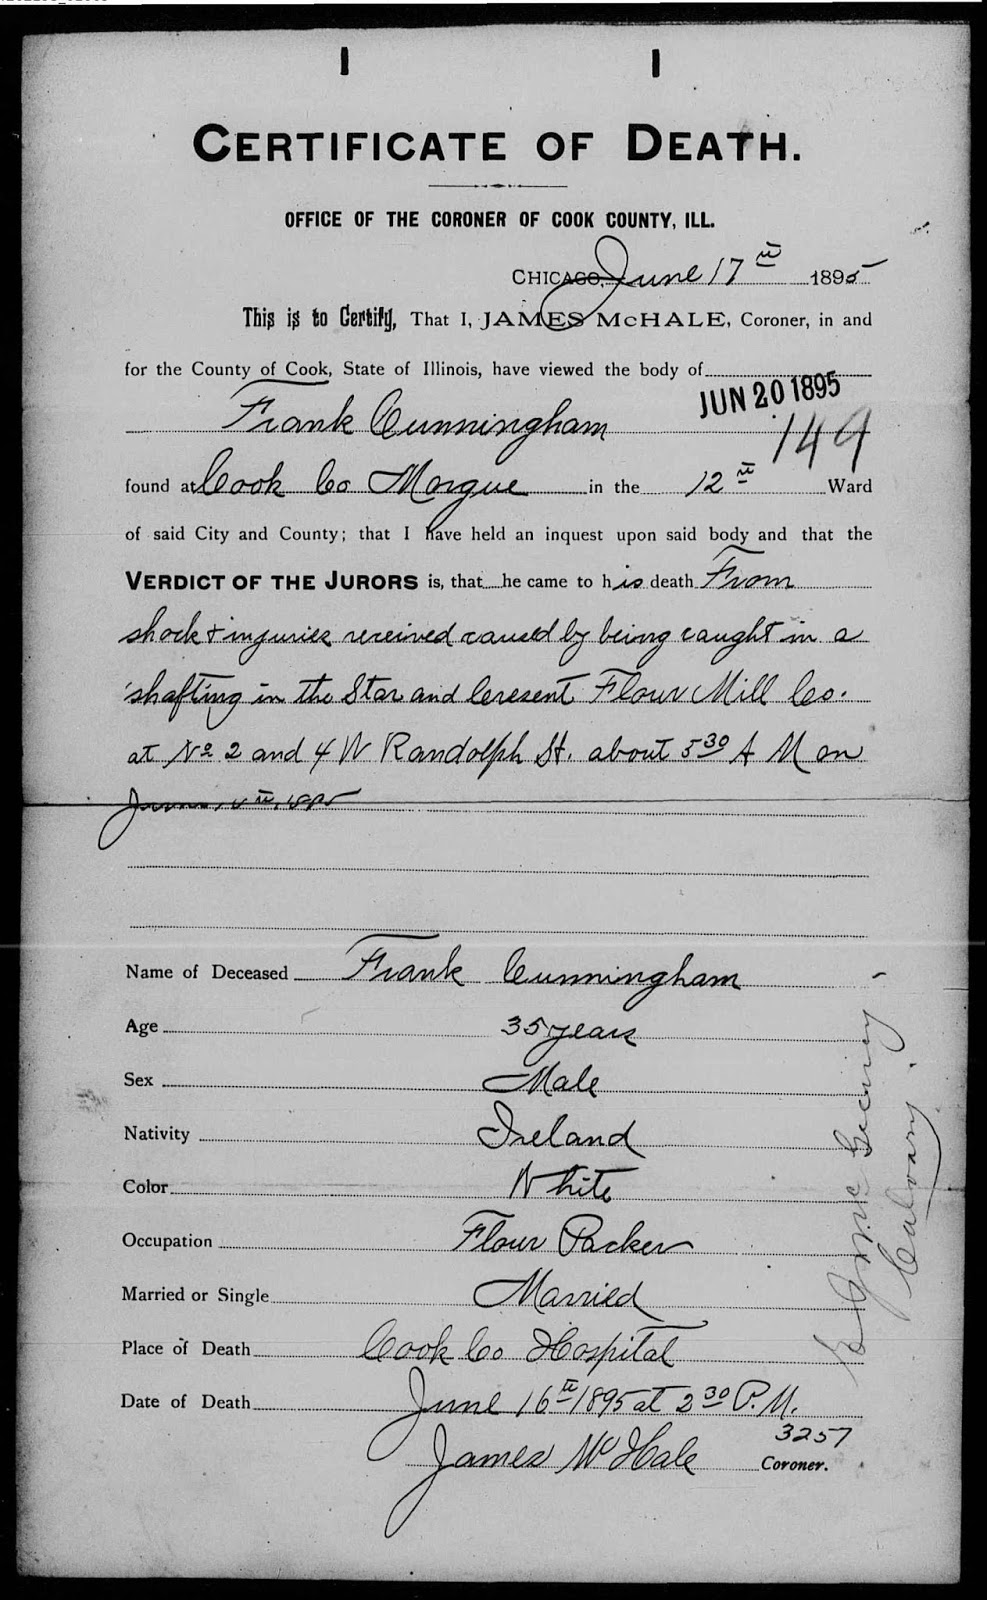 CERTIFICATE OF DEATH.
OFFICE OF THE CORONER OF COOK COUNTY, ILL.
CHICAGO, June 17th 1895
This is to Certify, That I, JAMES McHALE, Coroner, in and
for the County of Cook, State of Illinois, have viewed the body of
JUN 20 1895
Frank Cunningham 149
found at Cook Co Morgue in the 12th Ward
of said City and County; that I have held an inquest upon said body and that the
VERDICT OF THE JURORS is, that he came to his death From
shock + injuries received caused by being caught in a
shafting in the Star and Cresent Flour Mill Co.
at No 2 and 4 W Randolph St. about 5 30 A M on
June 1895
Name of Deceased Frank Cunningham
Age 35 years
Sex Male
Nativity Ireland
Color White
Occupation Flour Packer
Married or Single Married
Place of Death Cook Co Hospital
Date of Death June 16th 1895 at 2 30 P.M.
3257
James McHale Coroner.
Calvary.